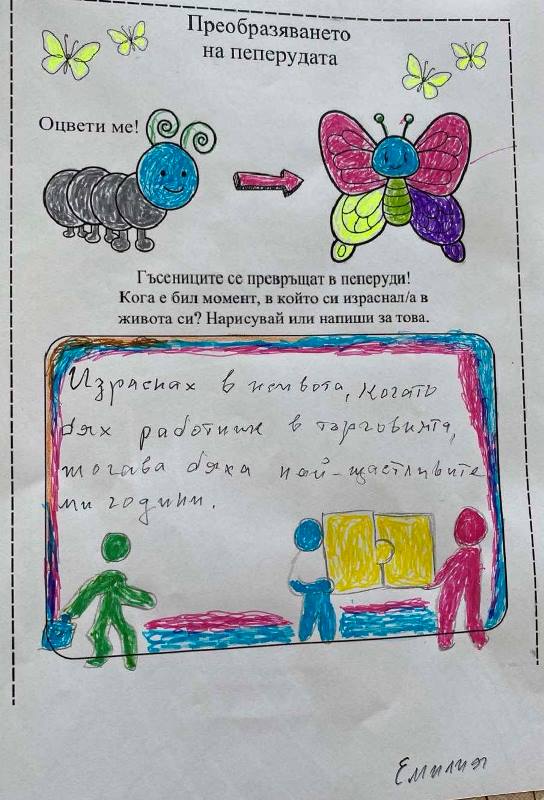 Преобразяването
на пеперудата
Оцвети ме!
Гъсениците се превръщат в пеперуди!
Кога е бил момент, в който си израснал/а в
живота си? Нарисувай или напиши за това.
Израснах в живота, когато
бях работник в търговията,
тогава бяха най-щастливите
ми години.
Емилия